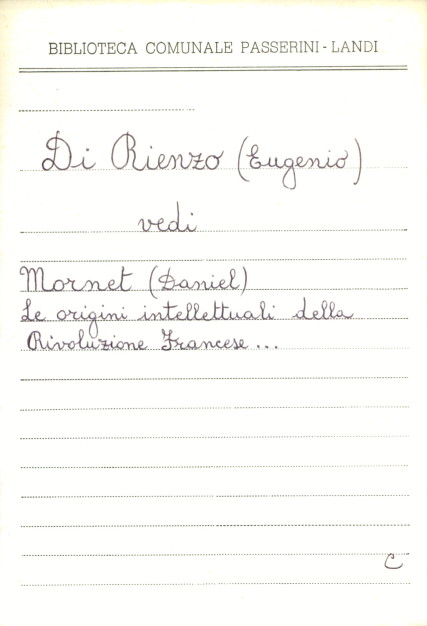 BIBLIOTECA COMUNALE PASSERINI - LANDI
Di Rienzo (Eugenio)
vedi
Mornet (Daniel)
Le origini intellettuali della
Rivoluzione Francese ...
C